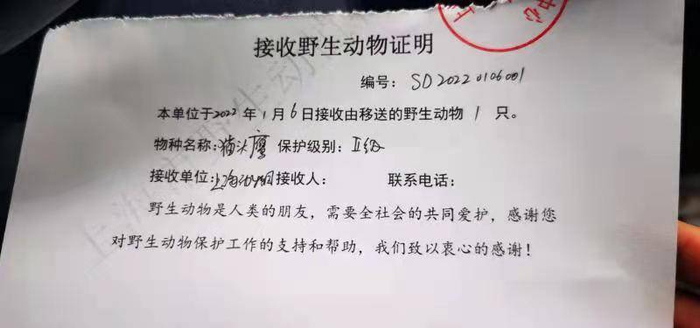 中心
接收野生动物证明
编号: SD20220106001
本单位于2022年1月6日接收由移送的野生动物1只。
物种名称:猫头鹰 保护级别:Ⅱ级
接收单位:上海动物园接收人: 联系电话:
野生动物是人类的朋友，需要全社会的共同爱护，感谢您
对野生动物保护工作的支持和帮助，我们致以衷心的感谢！